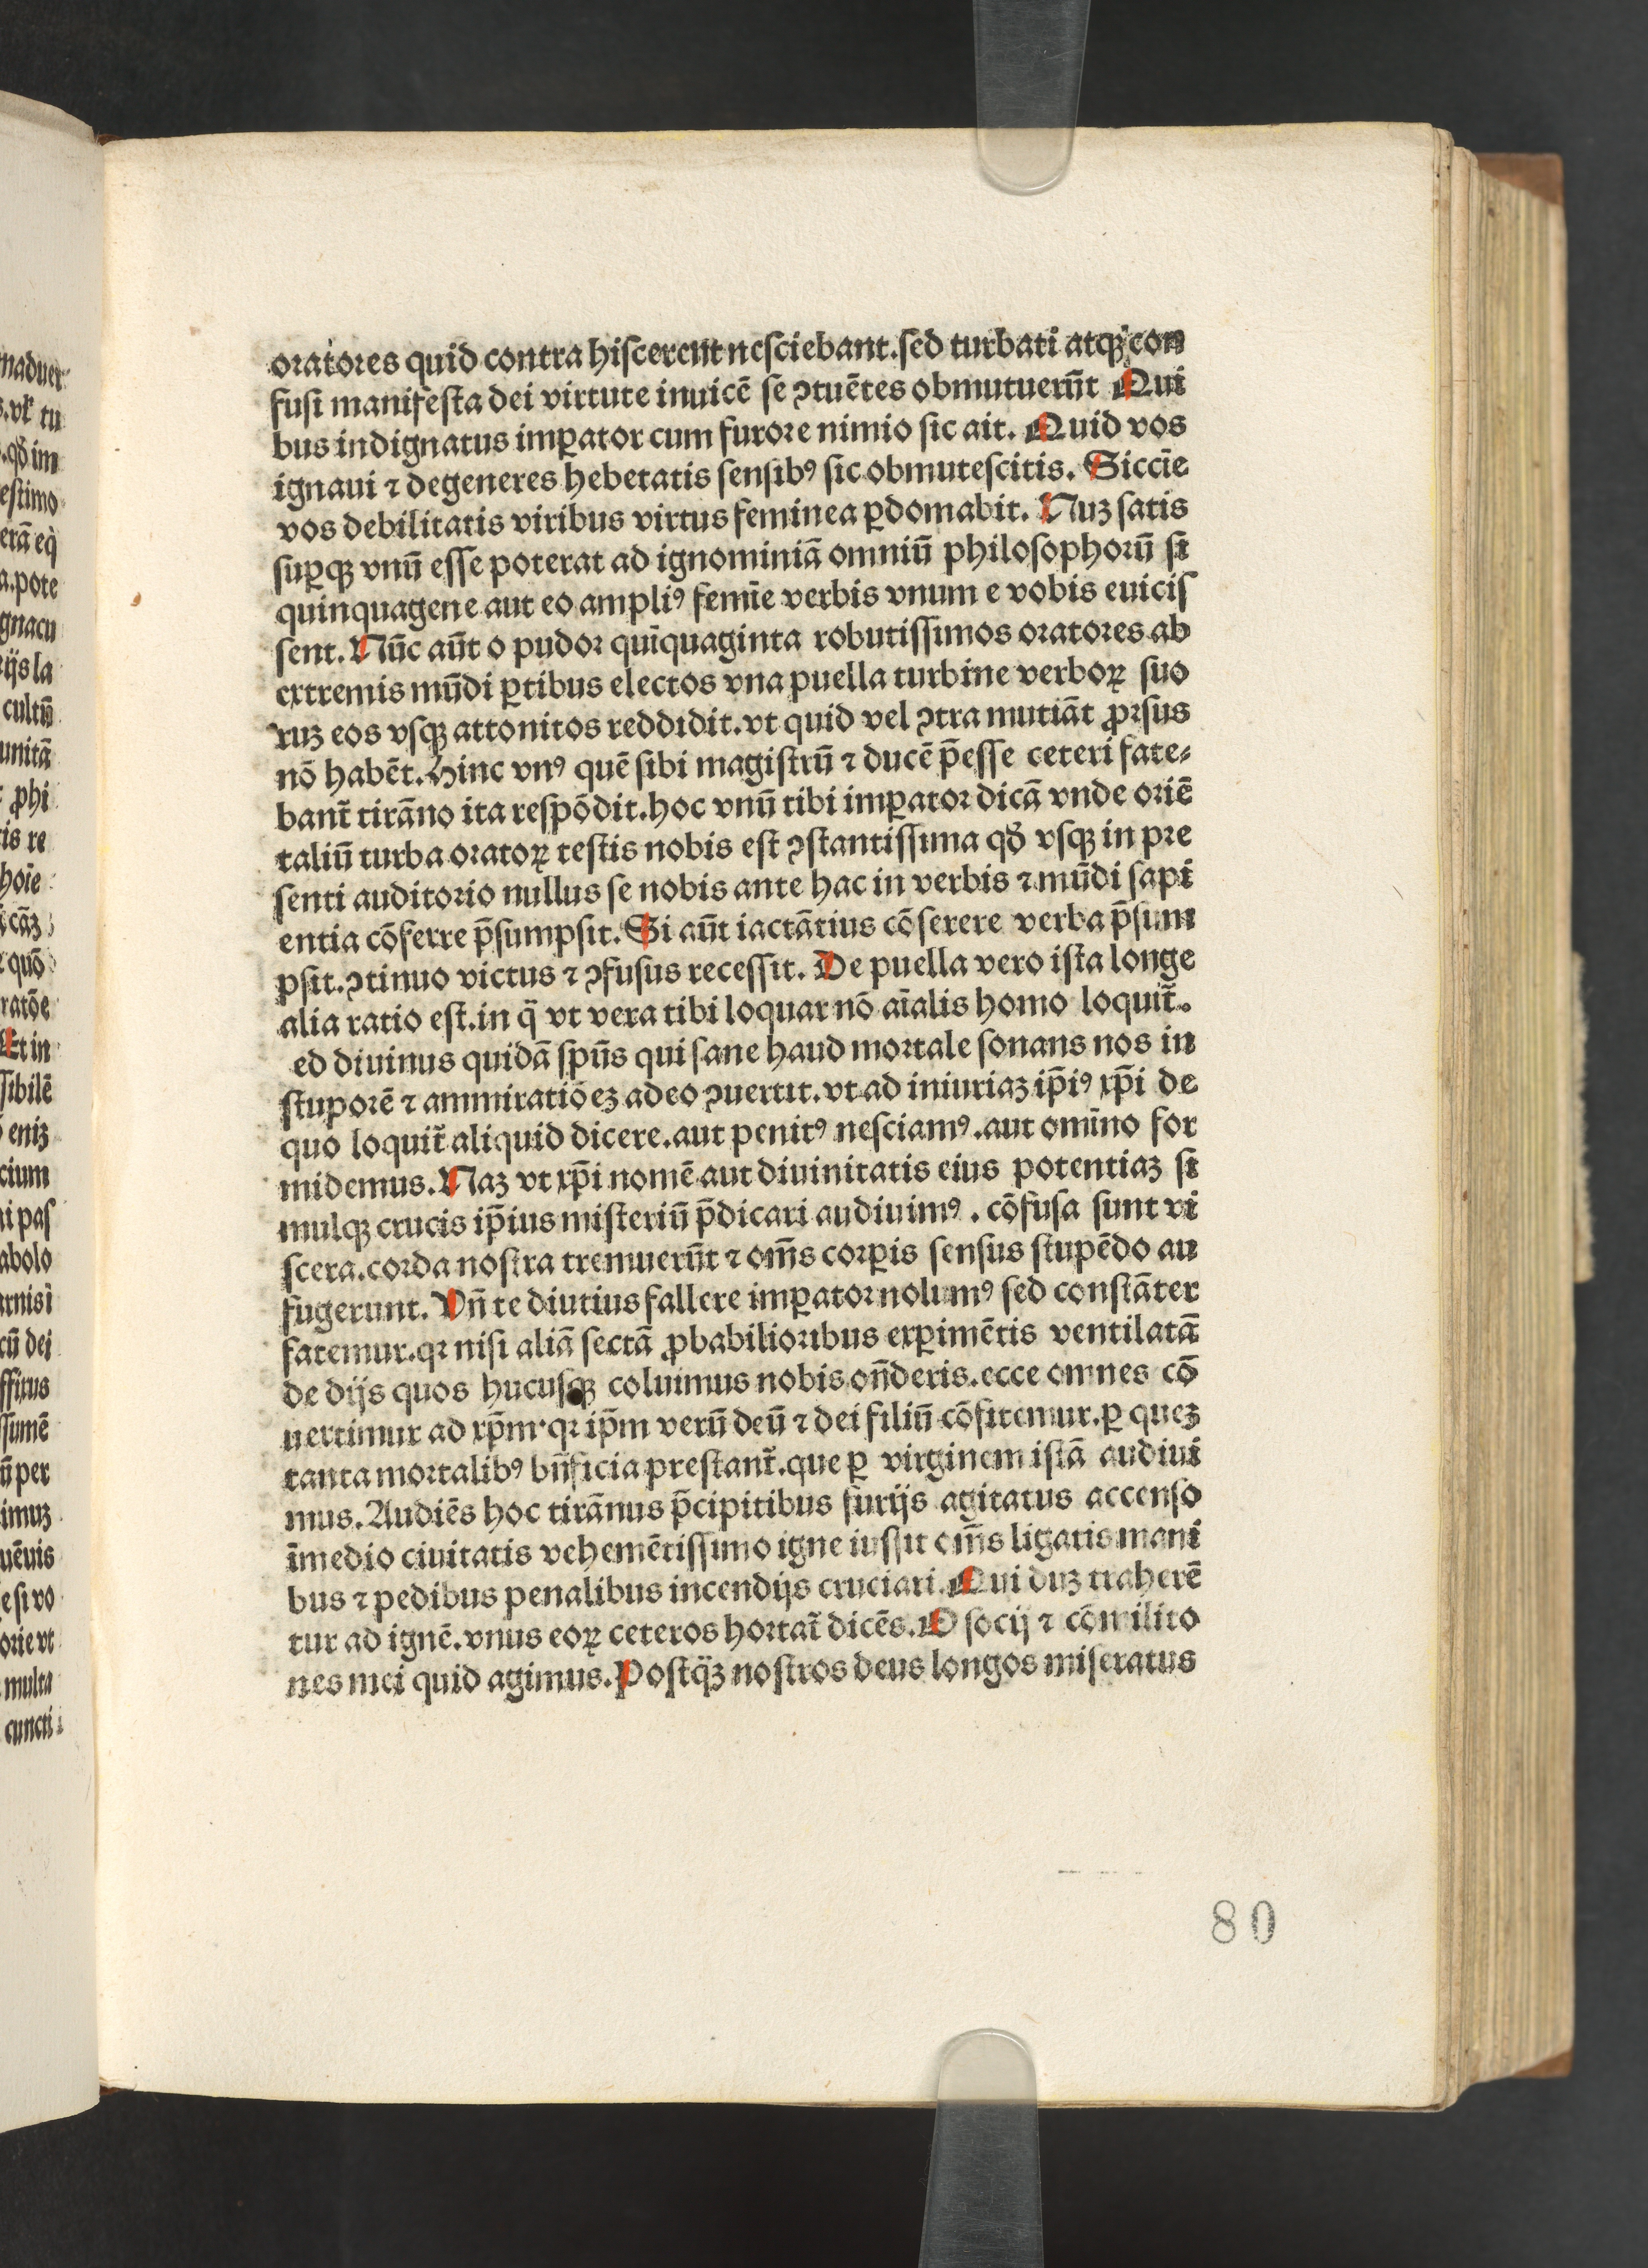 oratores quid contra hiscerent nesciebant.sed turbati atqꝫ con
fusi manifesta dei virtute inuicē se ꝯtuētes obmutuerūt Qui
bus indignatus imꝑator cum furore nimio sic ait. Quid vos
ignaui ⁊ degeneres hebetatis sensibꝰ sic obmutescitis. Siccīe
vos debilitatis viribus virtus feminea ꝑdomabit. Nuꝫ satis
suꝑqꝫ vnū esse poterat ad ignominiā omniū philosophorū si
quinquagene aut eo ampliꝰ femīe verbis vnum e vobis euicis
sent. Nūc aūt o pudor quīquaginta robutissimos oratores ab
extremis mūdi ꝑtibus electos vna puella turbine verboꝝ suo
ruꝫ eos vsqꝫ attonitos reddidit.vt quid vel ꝯtra mutiāt ꝓrsus
nō habēt. Hinc vnꝰ quē sibi magistrū ⁊ ducē p̄esse ceteri fate-
bant̄ tirāno ita respōdit.hoc vnū tibi imꝑator dicā vnde oriē
taliū turba oratoꝝ testis nobis est ꝯstantissima qđ vsqꝫ in pre
senti auditorio nullus se nobis ante hac in verbis ⁊ mūdi sapi
entia cōferre p̄sumpsit. Si aūt iactātius cōserere verba p̄sum
psit.ꝯtinuo victus ⁊ ꝯfusus recessit. De puella vero ista longe
alia ratio est.in q̄ vt vera tibi loquar nō aīalis homo loquit̄.
ed diuinus quidā sp̄us qui sane haud mortale sonans nos in
stuporē ⁊ ammiratiōeꝫ adeo ꝯuertit.vt ad iniuriaꝫ ip̄iꝰ xp̄i de
quo loquit̄ aliquid dicere.aut penitꝰ nesciamꝰ.aut omīno for
midemus. Naꝫ vt xp̄i nomē aut diuinitatis eius potentiaꝫ si
mulqꝫ crucis ip̄ius misteriū p̄dicari audiuimꝰ. cōfusa sunt vi
scera.corda nostra tremuerūt ⁊ om̄s corꝑis sensus stupēdo au
fugerunt. Vn̄ te diutius fallere imꝑator nolumꝰ sed constāter
fatemur.qꝛ nisi aliā sectā ꝓbabilioribus exꝑimētis ventilatā
de dijs quos hucusqꝫ coluimus nobis on̄deris.ecce omnes cō
uertimur ad xp̄m.qꝛ ip̄m verū deū ⁊ dei filiū cōfitemur.ꝑ queꝫ
tanta mortalibꝰ bn̄ficia prestant̄.que ꝑ virginem istā audiui
mus. Audiēs hoc tirānus p̄cipitibus furijs agitatus accenso
īmedio ciuitatis vehemētissimo igne iussit om̄s ligatis mani
bus ⁊ pedibus penalibus incendijs cruciari. Qui duꝫ traherē
tur ad ignē.vnus eoꝝ ceteros hortat̄ dicēs. O socij ⁊ cōmilito
nes mei quid agimus. Postq̄ꝫ nostros deus longos miseratus
80